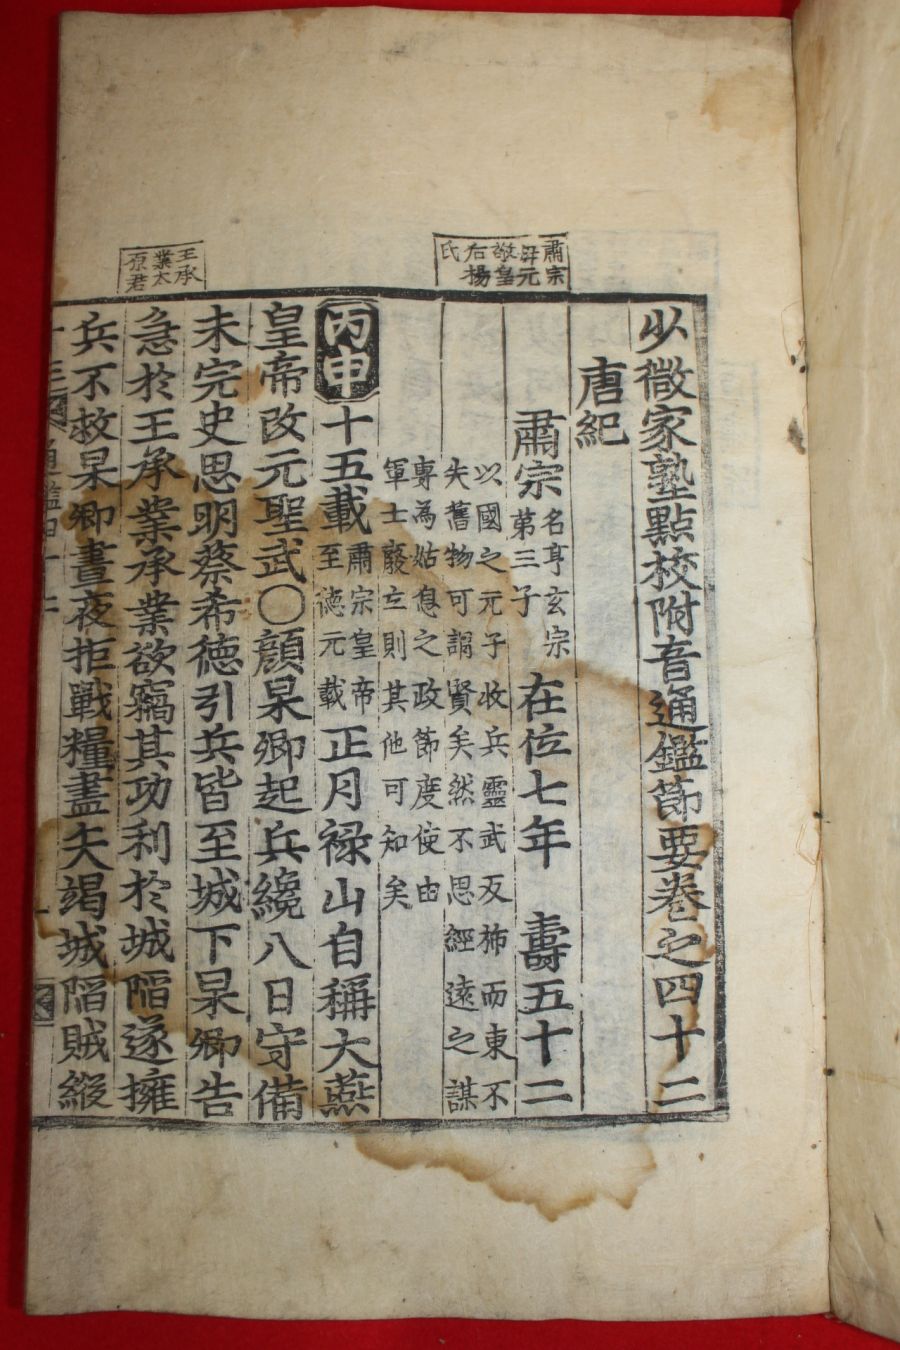 少微家塾點校附音通鑑節要卷之四十二
唐紀
肅宗 名亨玄宗
第三子 在位七年 壽五十二
以國之元子收兵靈武反旆而東不
失舊物可謂賢矣然不思經遠之謀
專為姑息之政節度使由
軍士廢立則其他可知矣
丙申 十五載 肅宗皇帝
至德元載 正月祿山自稱大燕
皇帝改元聖武○顏杲卿起兵纔八日守備
未完史思明蔡希德引兵皆至城下杲卿告
急於王承業承業欲竊其功利於城陷遂擁
兵不救杲卿晝夜拒戰糧盡矢竭城陷賊縱
肅宗
母元
敬皇
后楊
氏
王承
業太
原君
通鑑四十二